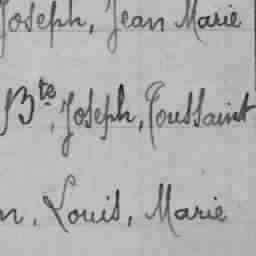 Joseph, Jean Marie
Bte, Joseph, Toussaint
n, Louis, Marie